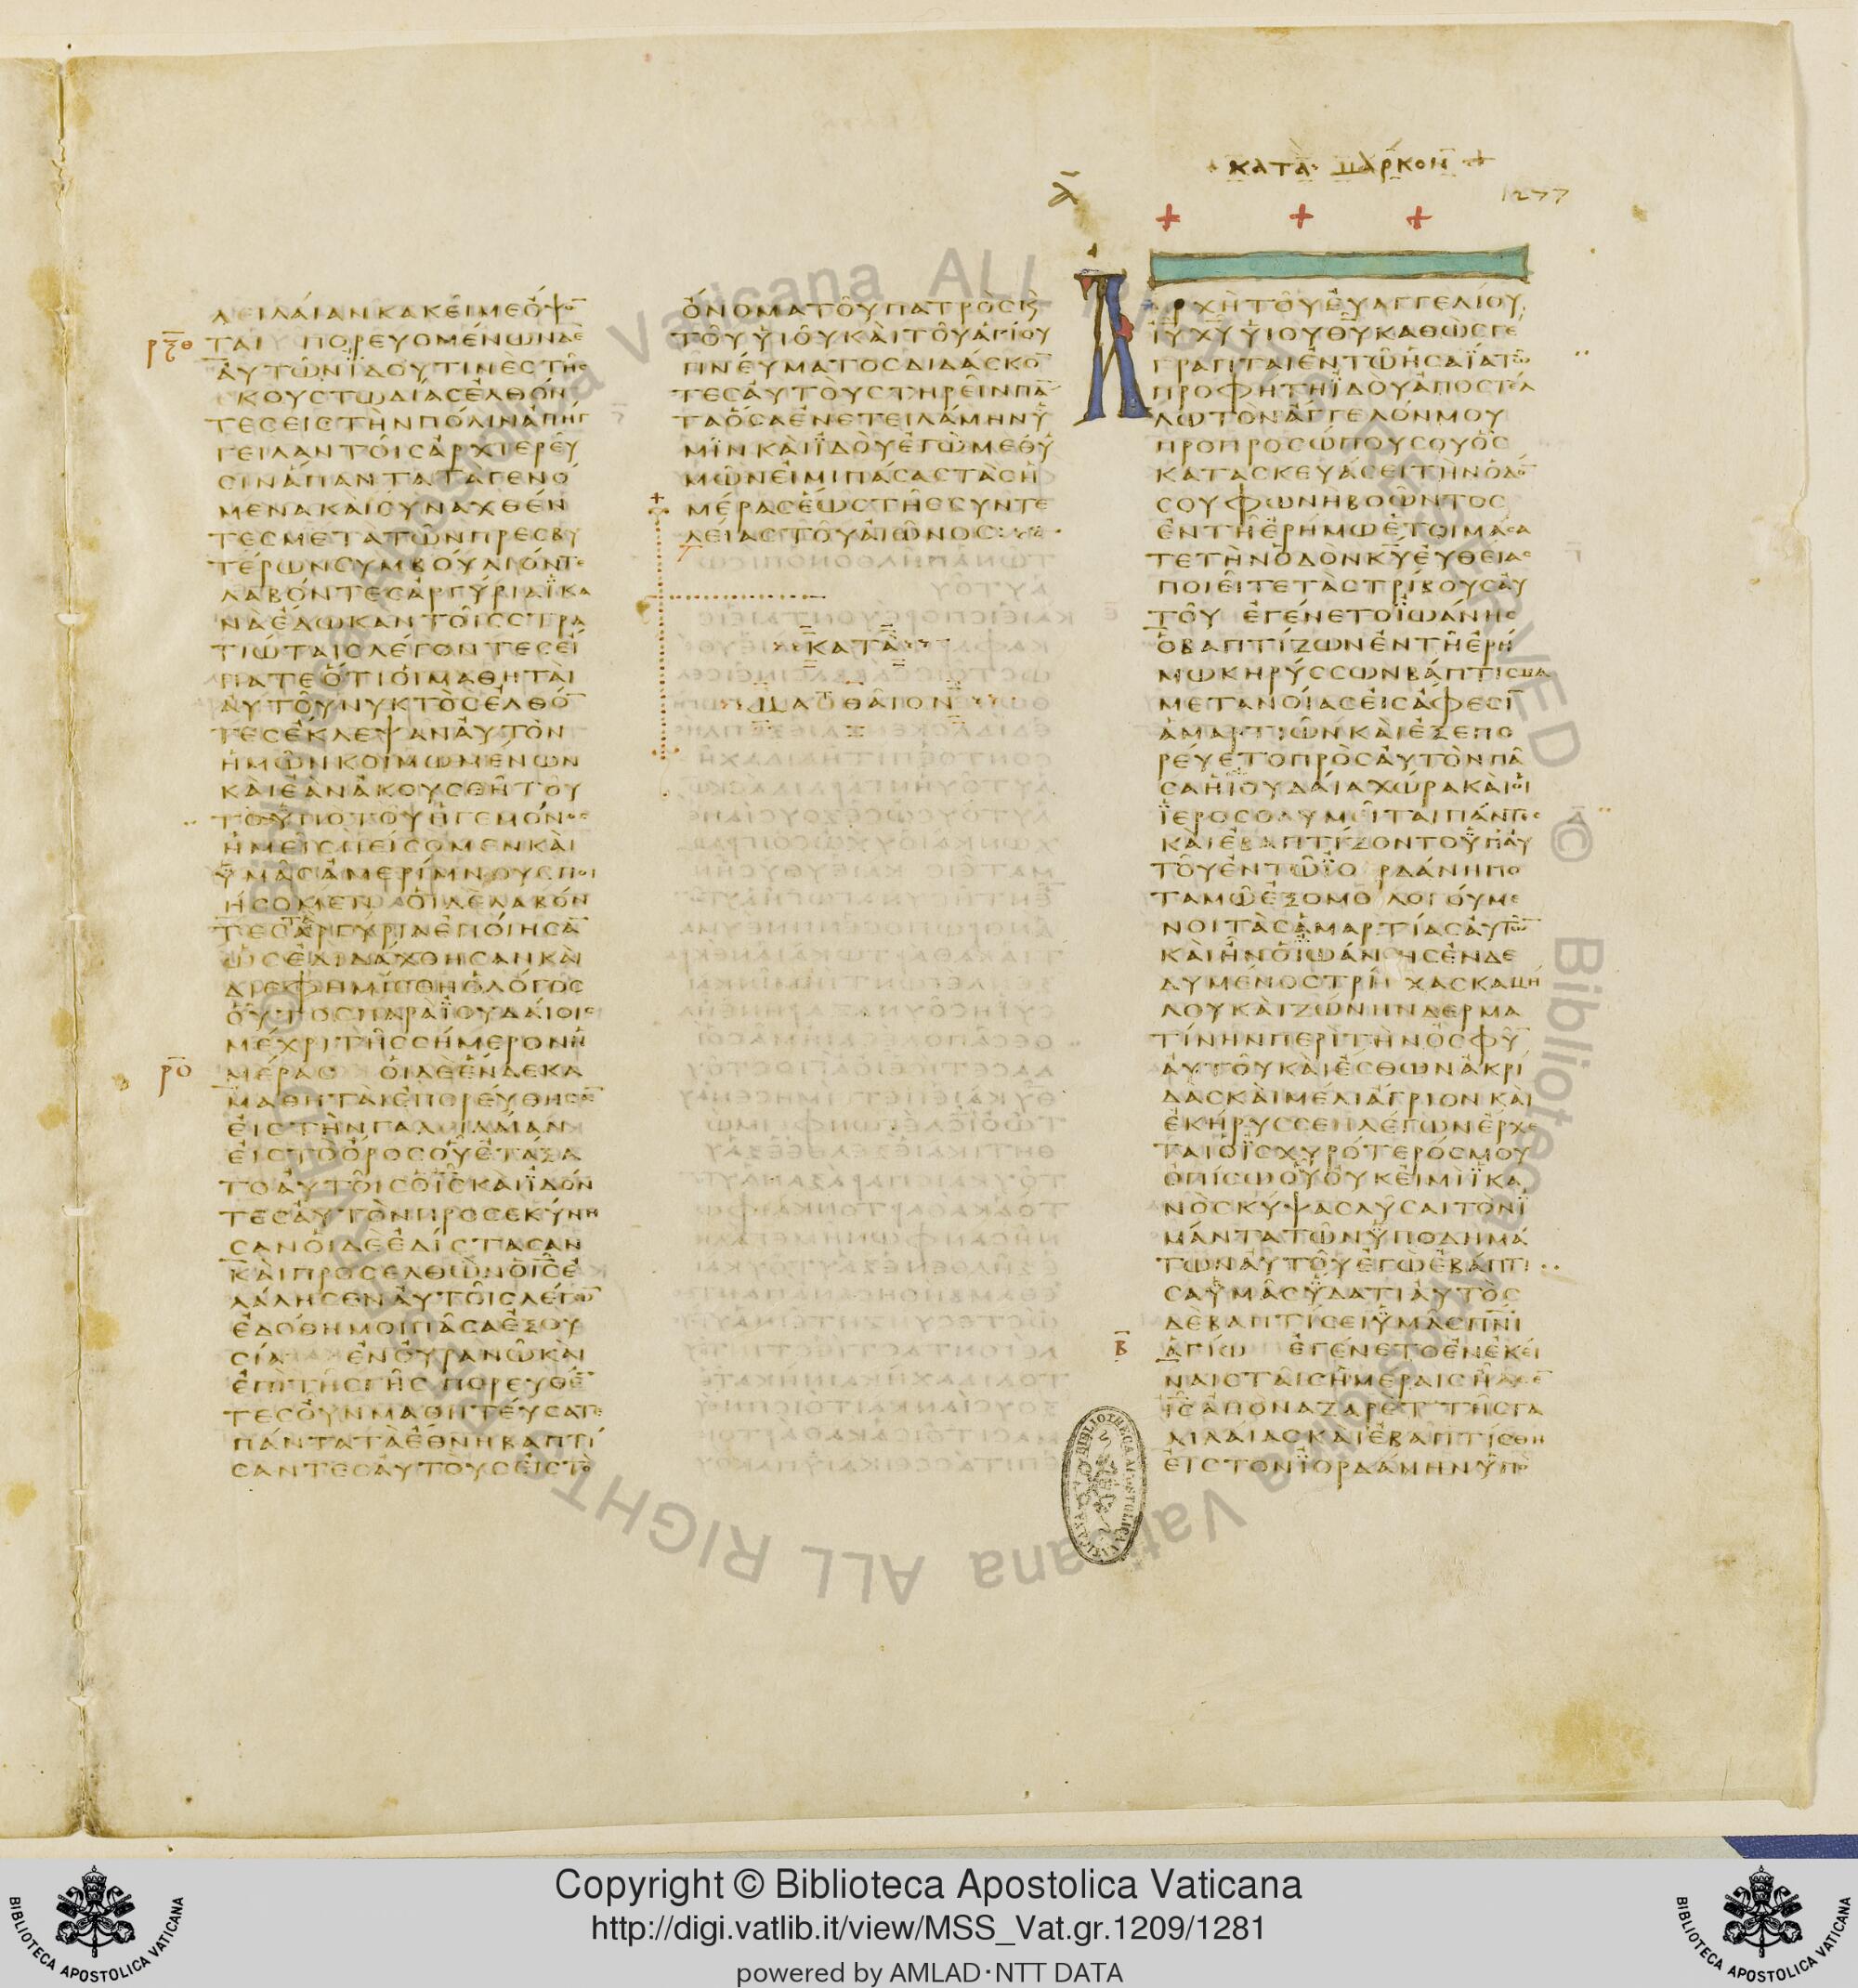 ΚΑΤΑ ΜΑΡΚΟΝ
1277
ΛΕΙΛΑΙΑΝΚΑΚΕΙΜΕΟΨΟ̅
ΤΑΙ ΠΟΡΕΥΟΜΕΝΩΝΔΕ
ΑΥΤΩΝΙΔΟΥΤΙΝΕΣΤΗΣ
ΚΟΥΣΤΩΔΙΑΣΕΛΘΟΝ
ΤΕΣΕΙΣΤΗΝΠΟΛΙΝΑΠΗΓ
ΓΕΙΛΑΝΤΟΙΣΑΡΧΙΕΡΕΥ
ΣΙΝΑΠΑΝΤΑΤΑΓΕΝΟ
ΜΕΝΑΚΑΙΣΥΝΑΧΘΕΝ
ΤΕΣΜΕΤΑΤΩΝΠΡΕΣΒΥ
ΤΕΡΩΝΣΥΜΒΟΥΛΙΟΝΤΕ
ΛΑΒΟΝΤΕΣΑΡΓΥΡΙΑΙΚΑ
ΝΑΕΔΩΚΑΝΤΟΙΣΣΤΡΑ
ΤΙΩΤΑΙΣΛΕΓΟΝΤΕΣΕΙ
ΠΑΤΕΟΤΙΟΙΜΑΘΗΤΑΙ
ΑΥΤΟΥΝΥΚΤΟΣΕΛΘΟ̅
ΤΕΣΕΚΛΕΨΑΝΑΥΤΟΝ
ΗΜΩΝΚΟΙΜΩΜΕΝΩΝ
ΚΑΙΕΑΝΑΚΟΥΣΘΗΤΟΥ
ΤΟΥΠΟΤΟΥΗΓΕΜΟΝΟΣ
ΗΜΕΙΣΠΕΙΣΟΜΕΝΚΑΙ
ΥΜΑΣΑΜΕΡΙΜΝΟΥΣΠΟΙ
ΗΣΟΜΕΝ ΟΙΔΕΛΑΒΟΝ
ΤΕΣΤΑΑΡΓΥΡΙΑΕΠΟΙΗΣΑ̅
ΩΣΕΔΙΔΑΧΘΗΣΑΝΚΑΙ
ΔΙΕΦΗΜΙΣΘΗΟΛΟΓΟΣ
ΟΥΤΟΣΠΑΡΑΙΟΥΔΑΙΟΙΣ
ΜΕΧΡΙΤΗΣΣΗΜΕΡΟΝΗ
ΜΕΡΑΣ ΟΙΔΕΕΝΔΕΚΑ
ΜΑΘΗΤΑΙΕΠΟΡΕΥΘΗΣΑ̅
ΕΙΣΤΗΝΓΑΛΙΛΑΙΑΝ
ΕΙΣΤΟΟΡΟΣΟΥΕΤΑΞΑ
ΤΟΑΥΤΟΙΣΟΙ̅Σ̅ΚΑΙΙΔΟΝ
ΤΕΣΑΥΤΟΝΠΡΟΣΕΚΥΝΗ
ΣΑΝΟΙΔΕΕΔΙΣΤΑΣΑΝ
ΚΑΙΠΡΟΣΕΛΘΩΝΟΙ̅Σ̅Ε
ΛΑΛΗΣΕΝΑΥΤΟΙΣΛΕΓΩ̅
ΕΔΟΘΗΜΟΙΠΑΣΑΕΞΟΥ
ΣΙΑ ΕΝΟΥΡΑΝΩΚΑΙ
ΕΠΙΤΗΣΓΗΣ ΠΟΡΕΥΘΕ̅
ΤΕΣΟΥΝΜΑΘΗΤΕΥΣΑΤΕ
ΠΑΝΤΑΤΑΕΘΝΗΒΑΠΤΙ
ΣΑΝΤΕΣΑΥΤΟΥΣΕΙΣΤΟ
ΟΝΟΜΑΤΟΥΠΑΤΡΟΣΚ
ΤΟΥΥΙΟΥΚΑΙΤΟΥΑΓΙΟΥ
ΠΝΕΥΜΑΤΟΣΔΙΔΑΣΚΟ̅
ΤΕΣΑΥΤΟΥΣΤΗΡΕΙΝΠΑ̅
ΤΑΟΣΑΕΝΕΤΕΙΛΑΜΗΝΥ
ΜΙΝΚΑΙΙΔΟΥΕΓΩΜΕΘΥ
ΜΩΝΕΙΜΙΠΑΣΑΣΤΑΣΗ
ΜΕΡΑΣΕΩΣΤΗΣΣΥΝΤΕ
ΛΕΙΑΣΤΟΥΑΙΩΝΟΣ
ΚΑΤΑ
ΜΑΘΘΑΙΟΝ
ΑΡΧΗΤΟΥΕΥΑΓΓΕΛΙΟΥ
Ι̅Υ̅Χ̅Υ̅ΥΙΟΥΘ̅Υ̅ΚΑΘΩΣΓΕ
ΓΡΑΠΤΑΙΕΝΤΩΗΣΑΙΑΤΩ
ΠΡΟΦΗΤΗΙΔΟΥΑΠΟΣΤΕΛ
ΛΩΤΟΝΑΓΓΕΛΟΝΜΟΥ
ΠΡΟΠΡΟΣΩΠΟΥΣΟΥΟΣ
ΚΑΤΑΣΚΕΥΑΣΕΙΤΗΝΟΔΟ̅
ΣΟΥΦΩΝΗΒΟΩΝΤΟΣ
ΕΝΤΗΕΡΗΜΩΕΤΟΙΜΑΣΑ
ΤΕΤΗΝΟΔΟΝΚ̅Υ̅ΕΥΘΕΙΑΣ
ΠΟΙΕΙΤΕΤΑΣΤΡΙΒΟΥΣΑΥ
ΤΟΥ ΕΓΕΝΕΤΟΙΩΑΝΗΣ
ΟΒΑΠΤΙΖΩΝΕΝΤΗΕΡΗ
ΜΩΚΗΡΥΣΣΩΝΒΑΠΤΙΣΜΑ
ΜΕΤΑΝΟΙΑΣΕΙΣΑΦΕΣΙ̅
ΑΜΑΡΤΙΩΝΚΑΙΕΞΕΠΟ
ΡΕΥΕΤΟΠΡΟΣΑΥΤΟΝΠΑ
ΣΑΗΙΟΥΔΑΙΑΧΩΡΑΚΑΙΟΙ
ΙΕΡΟΣΟΛΥΜΕΙΤΑΙΠΑΝΤΕΣ
ΚΑΙΕΒΑΠΤΙΖΟΝΤΟΥΠΑΥ
ΤΟΥΕΝΤΩΙΟΡΔΑΝΗΠΟ
ΤΑΜΩΕΞΟΜΟΛΟΓΟΥΜΕ
ΝΟΙΤΑΣΑΜΑΡΤΙΑΣΑΥΤΩ̅
ΚΑΙΗΝΟΙΩΑΝΗΣΕΝΔΕ
ΔΥΜΕΝΟΣΤΡΙΧΑΣΚΑΜΗ
ΛΟΥΚΑΙΖΩΝΗΝΔΕΡΜΑ
ΤΙΝΗΝΠΕΡΙΤΗΝΟΣΦΥ̅
ΑΥΤΟΥΚΑΙΕΣΘΩΝΑΚΡΙ
ΔΑΣΚΑΙΜΕΛΙΑΓΡΙΟΝΚΑΙ
ΕΚΗΡΥΣΣΕΝΛΕΓΩΝΕΡΧΕ
ΤΑΙΟΙΣΧΥΡΟΤΕΡΟΣΜΟΥ
ΟΠΙΣΩΟΥΟΥΚΕΙΜΙΙΚΑ
ΝΟΣΚΥΨΑΣΛΥΣΑΙΤΟΝΙ
ΜΑΝΤΑΤΩΝΥΠΟΔΗΜΑ
ΤΩΝΑΥΤΟΥΕΓΩΕΒΑΠΤΙ
ΣΑΥΜΑΣΥΔΑΤΙΑΥΤΟΣ
ΔΕΒΑΠΤΙΣΕΙΥΜΑΣΠ̅Ν̅Ι̅
ΑΓΙΩ ΕΓΕΝΕΤΟΕΝΕΚΕΙ
ΝΑΙΣΤΑΙΣΗΜΕΡΑΙΣΗΛΘΕ̅
Ι̅Σ̅ΑΠΟΝΑΖΑΡΕΤΤΗΣΓΑ
ΛΙΛΑΙΑΣΚΑΙΕΒΑΠΤΙΣΘΗ
ΕΙΣΤΟΝΙΟΡΔΑΝΗΝΥΠΟ
Copyright © Biblioteca Apostolica Vaticana
http://digi.vatlib.it/view/MSS_Vat.gr.1209/1281
powered by AMLAD·NTT DATA
BIBLIOTECA APOSTOLICA VATICANA
BIBLIOTECA APOSTOLICA VATICANA